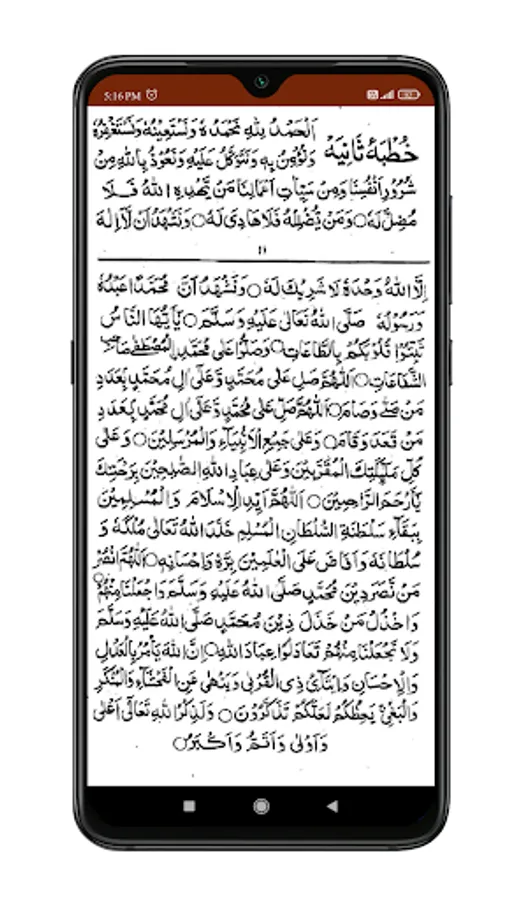 5:16 PM
خُطْبَۂ ثَانِیَہ
اَلْحَمْدُ لِلّٰهِ نَحْمَدُهٗ وَنَسْتَعِيْنُهٗ وَنَسْتَغْفِرُهٗ
وَنُؤْمِنُ بِهٖ وَنَتَوَكَّلُ عَلَيْهِ وَنَعُوْذُ بِاللّٰهِ مِنْ
شُرُوْرِ اَنْفُسِنَا وَمِنْ سَيِّاٰتِ اَعْمَالِنَا مَنْ يَّهْدِهِ اللّٰهُ فَلَا
مُضِلَّ لَهٗ ○ وَمَنْ يُّضْلِلْهُ فَلَا هَادِيَ لَهٗ ○ وَنَشْهَدُ اَنْ لَّآ اِلٰهَ
اِلَّا اللّٰهُ وَحْدَهٗ لَا شَرِيْكَ لَهٗ ○ وَنَشْهَدُ اَنَّ مُحَمَّدًا عَبْدُهٗ
وَرَسُوْلُهٗ صَلَّى اللّٰهُ تَعَالٰى عَلَيْهِ وَسَلَّمَ ○ يٰٓاَيُّهَا النَّاسُ
قُلُوْبَكُمْ بِالطَّاعَاتِ ○ وَصَلُّوْا عَلٰى مُحَمَّدِ ۨالْمُصْطَفٰى
الشَّفَاعَاتِ ○ اَللّٰهُمَّ صَلِّ عَلٰى مُحَمَّدٍ وَّعَلٰٓى اٰلِ مُحَمَّدٍ بِعَدَدِ
مَنْ صَلّٰى وَصَامَ ○ اَللّٰهُمَّ صَلِّ عَلٰى مُحَمَّدٍ وَّعَلٰٓى اٰلِ مُحَمَّدٍ بِعَدَدِ
مَنْ قَعَدَ وَقَامَ ○ وَعَلٰى جَمِيْعِ الْاَنْۢبِيَآءِ وَالْمُرْسَلِيْنَ ○ وَعَلٰى
كُلِّ مَلٰٓئِكَتِكَ الْمُقَرَّبِيْنَ وَعَلٰى عِبَادِ اللّٰهِ الصّٰلِحِيْنَ بِرَحْمَتِكَ
يَآ اَرْحَمَ الرَّاحِمِيْنَ ○ اَللّٰهُمَّ اَيِّدِ الْاِسْلَامَ وَالْمُسْلِمِيْنَ
بِبَقَآءِ سَلْطَنَةِ السُّلْطَانِ الْمُسْلِمِ خَلَّدَ اللّٰهُ تَعَالٰى مُلْكَهٗ وَ
سُلْطَانَهٗ وَاَفَاضَ عَلَى الْعٰلَمِيْنَ بِرَّهٗ وَاِحْسَانَهٗ ○ اَللّٰهُمَّ انْصُرْ
مَنْ نَّصَرَ دِيْنَ مُحَمَّدٍ صَلَّى اللّٰهُ عَلَيْهِ وَسَلَّمَ وَاجْعَلْنَا مِنْهُمْ
وَاخْذُلْ مَنْ خَذَلَ دِيْنَ مُحَمَّدٍ صَلَّى اللّٰهُ عَلَيْهِ وَسَلَّمَ
وَلَا تَجْعَلْنَا مِنْهُمْ تَعَادَلُوْا عِبَادَ اللّٰهِ ○ اِنَّ اللّٰهَ يَأْمُرُ بِالْعَدْلِ
وَالْاِحْسَانِ وَاِيْتَآئِ ذِي الْقُرْبٰى وَيَنْهٰى عَنِ الْفَحْشَآءِ وَالْمُنْكَرِ
وَالْبَغْيِ يَعِظُكُمْ لَعَلَّكُمْ تَذَكَّرُوْنَ ○ وَلَذِكْرُ اللّٰهِ تَعَالٰى اَعْلٰى
وَاَوْلٰى وَاَتَمُّ وَاَكْبَرُ ○